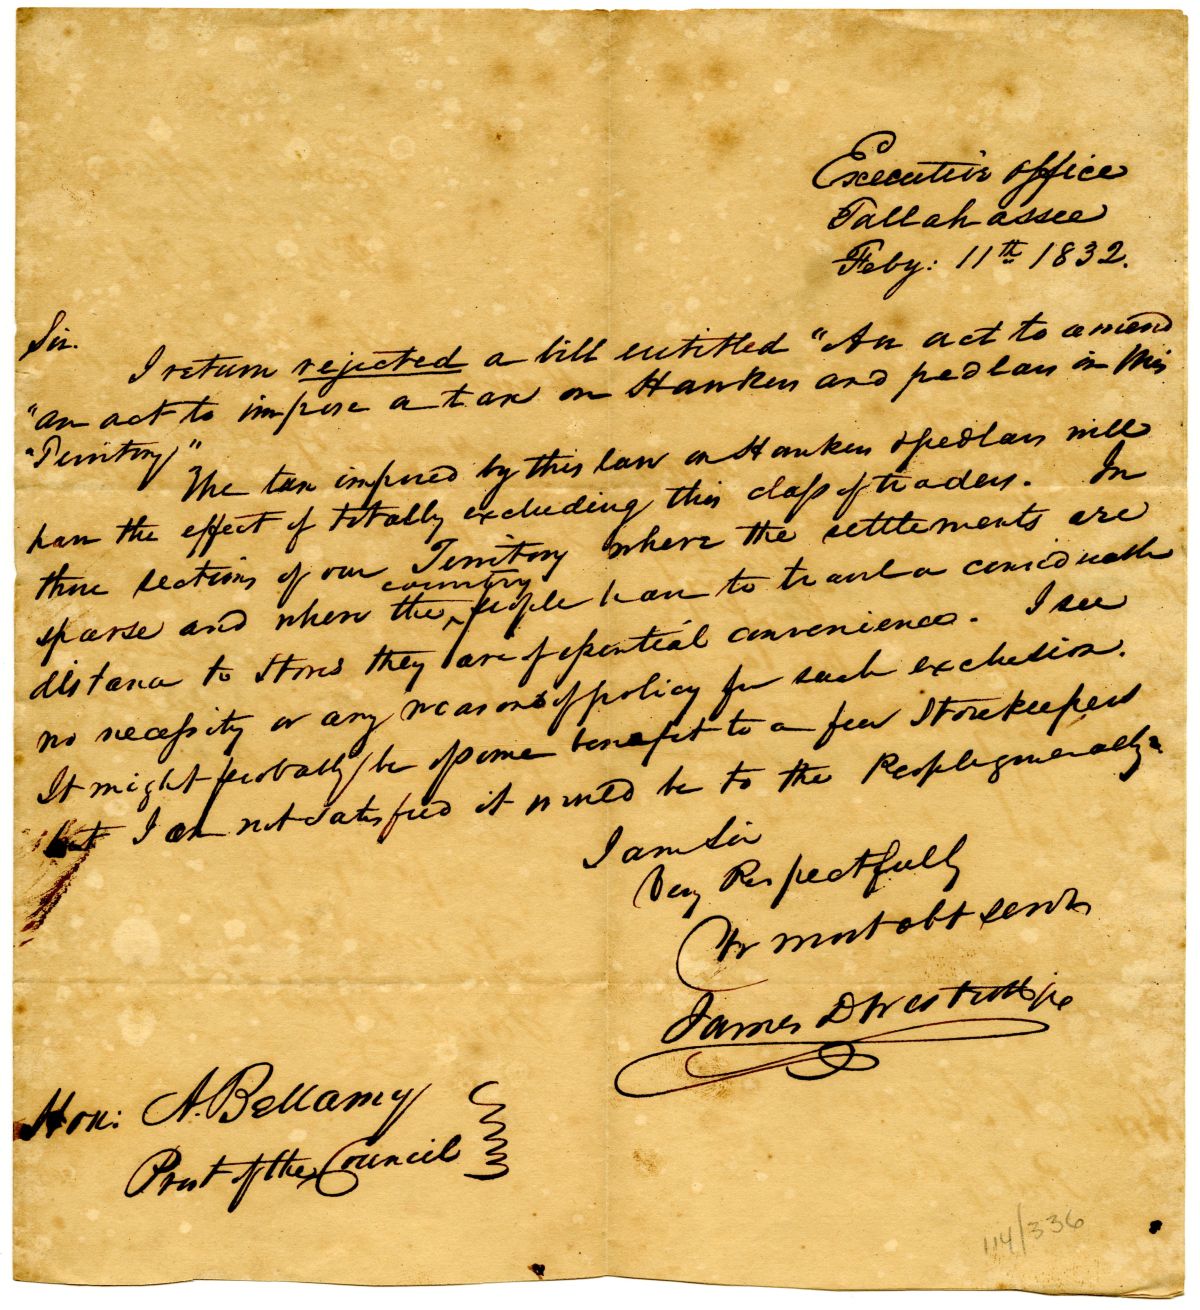 Executive office
Tallahassee
Feby: 11th 1832.
Sir.
I return rejected a bill entitled "An act to amend
"an act to impose a tax on Hawkers and pedlars in this
"Territory"
The tax imposed by this law on Hawkers & pedlars will
have the effect of totally excluding this class of traders. In
those sections of our Territory where the settlements are
country
sparse and where the ^ people have to travel a considerable
distance to stores they are of essential convenience. I see
no necessity or any reasons of policy for such exclusion.
It might probably be of some benefit to a few Storekeepers
but I am not satisfied it would be to the People generally.
I am Sir
Very Respectfully
Yr most obt servt
James D Westcott jr
Hon: A. Bellamy
Prest of the Council
114/336